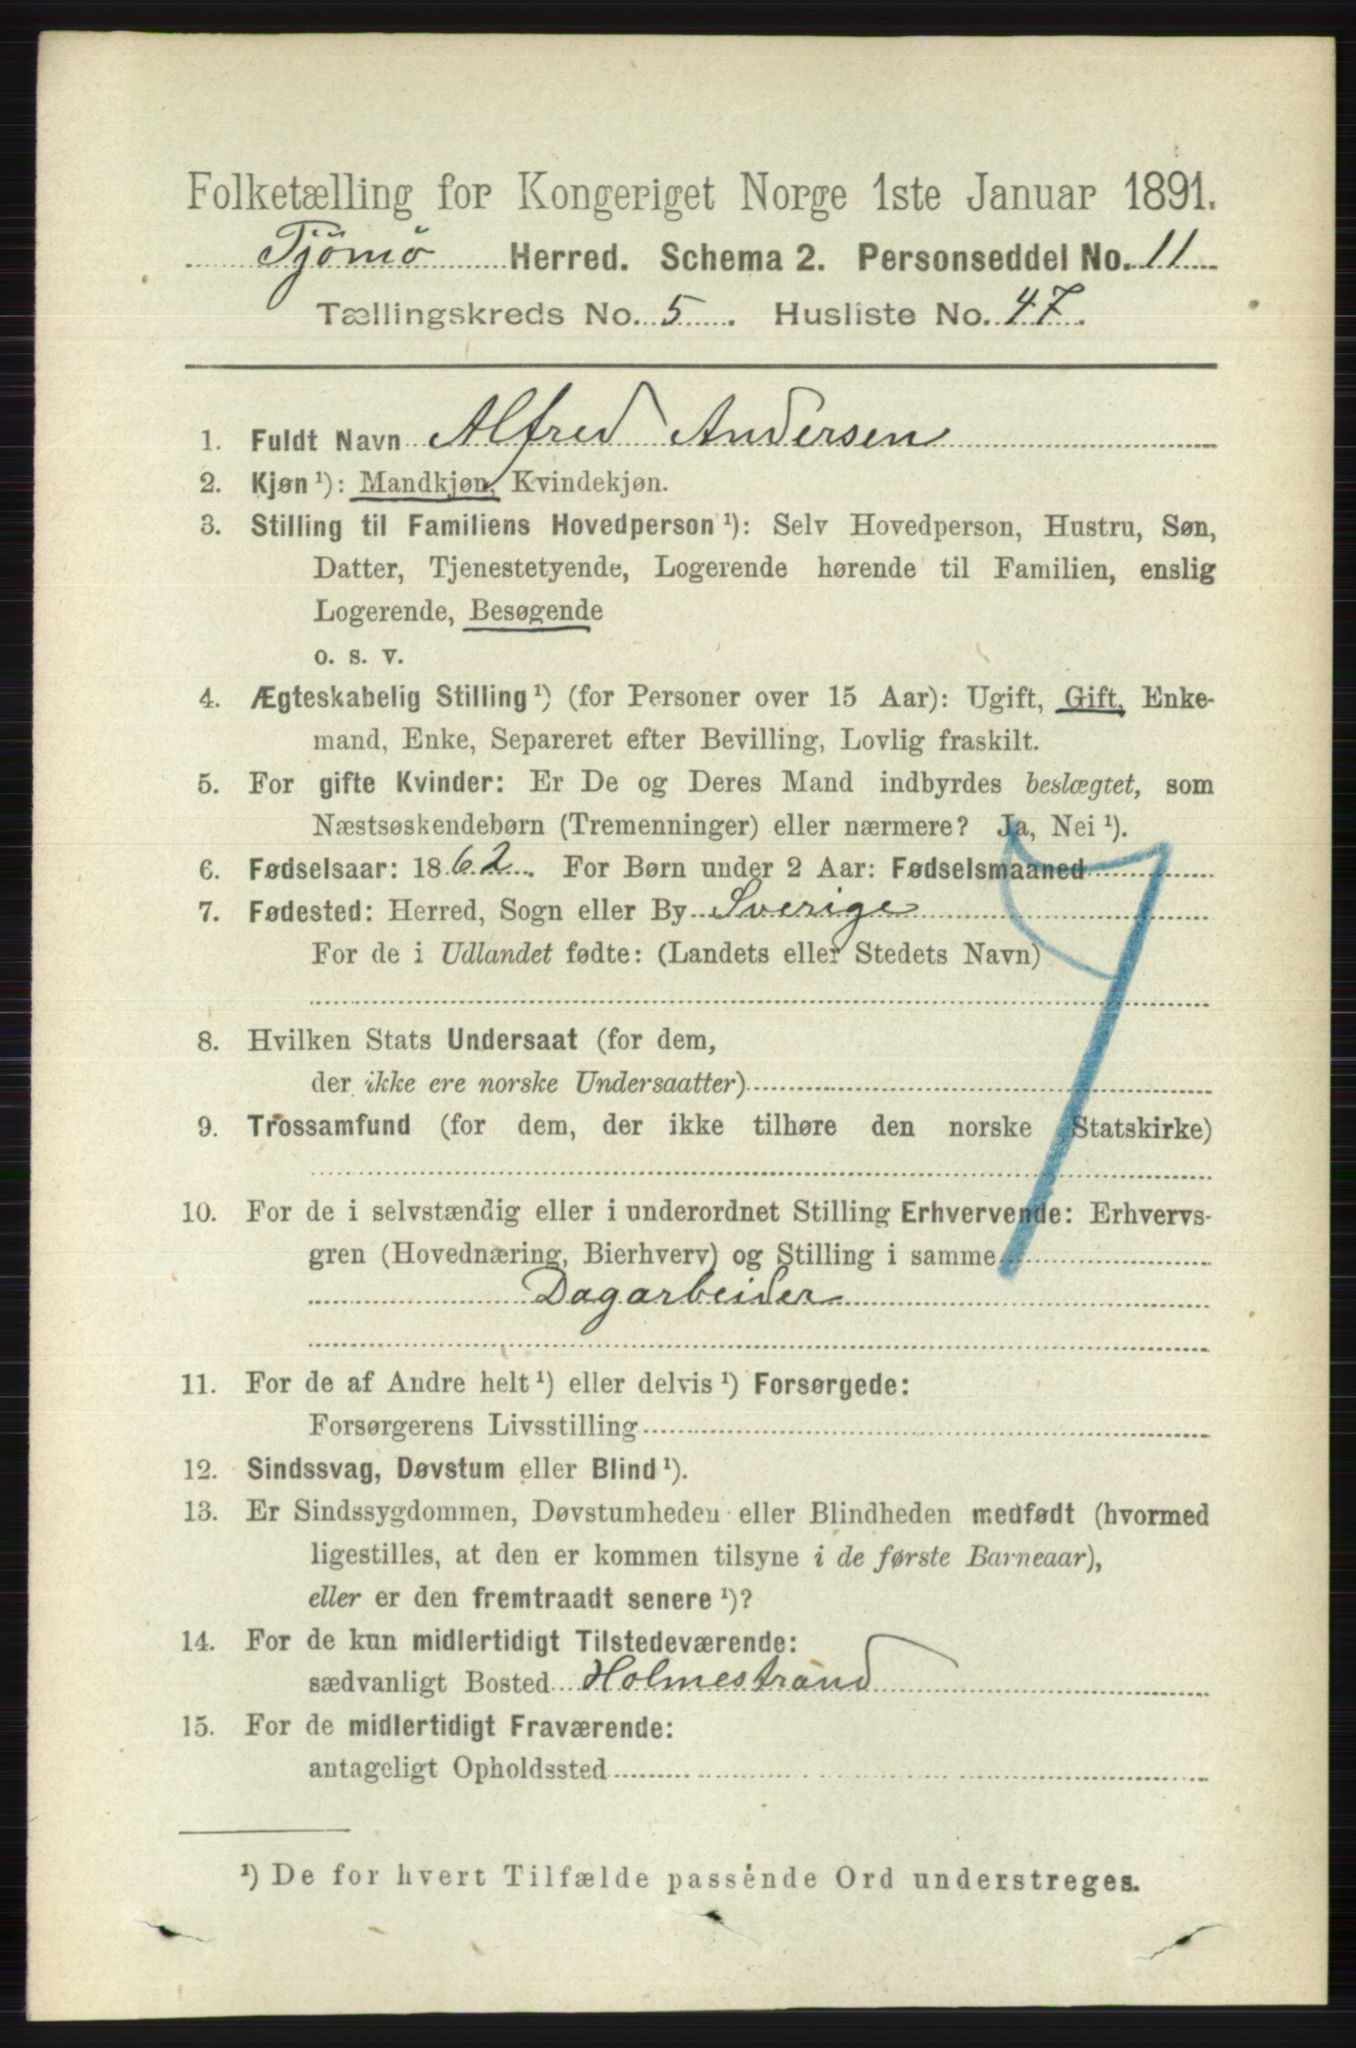 Folketælling for Kongeriget Norge 1ste Januar 1891.
Tjömö Herred. Schema 2. Personseddel No. 11
Tællingskreds No. 5. Husliste No. 47.
1. Fuldt Navn Alfred Andersen
2. Kjøn ¹): Mandkjøn, Kvindekjøn.
3. Stilling til Familiens Hovedperson ¹): Selv Hovedperson, Hustru, Søn,
Datter, Tjenestetyende, Logerende hørende til Familien, enslig
Logerende, Besøgende
o. s. v.
4. Ægteskabelig Stilling ¹) (for Personer over 15 Aar): Ugift, Gift, Enke-
mand, Enke, Separeret efter Bevilling, Lovlig fraskilt.
5. For gifte Kvinder: Er De og Deres Mand indbyrdes beslægtet, som
Næstsøskendebørn (Tremenninger) eller nærmere? Ja, Nei ¹).
6. Fødselsaar: 1862. For Børn under 2 Aar: Fødselsmaaned
7. Fødested: Herred, Sogn eller By Sverige
For de i Udlandet fødte: (Landets eller Stedets Navn)
8. Hvilken Stats Undersaat (for dem,
der ikke ere norske Undersaatter)
9. Trossamfund (for dem, der ikke tilhøre den norske Statskirke)
10. For de i selvstændig eller i underordnet Stilling Erhvervende: Erhvervs-
gren (Hovednæring, Bierhverv) og Stilling i samme
Dagarbeider
11. For de af Andre helt ¹) eller delvis ¹) Forsørgede:
Forsørgerens Livsstilling
12. Sindssvag, Døvstum eller Blind ¹).
13. Er Sindssygdommen, Døvstumheden eller Blindheden medfødt (hvormed
ligestilles, at den er kommen tilsyne i de første Barneaar),
eller er den fremtraadt senere ¹)?
14. For de kun midlertidigt Tilstedeværende:
sædvanligt Bosted Holmestrand
15. For de midlertidigt Fraværende:
antageligt Opholdssted
¹) De for hvert Tilfælde passende Ord understreges.